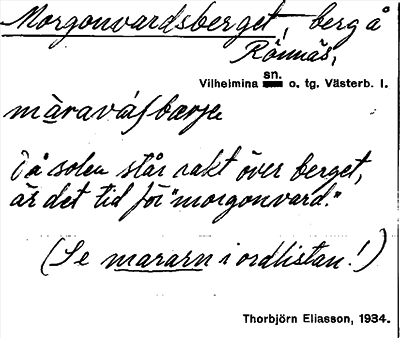 Morgonvardsberget, berg å
Rönnäs,
Vilhelmina sn. o. tg. Västerb. l.
màravásbærje
Då solen står rakt över berget,
är det tid för "morgonvard."
(Se mararn i ordlistan!)
Thorbjörn Eliasson, 1934.